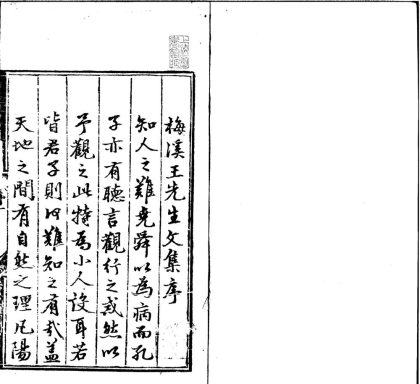 梅溪王先生文集序
知人之難堯舜以為病而孔
子亦有聽言觀行之戒然以
予觀之此特為小人設耳若
皆君子則何難知之有哉盖
天地之間有自然之理凡陽